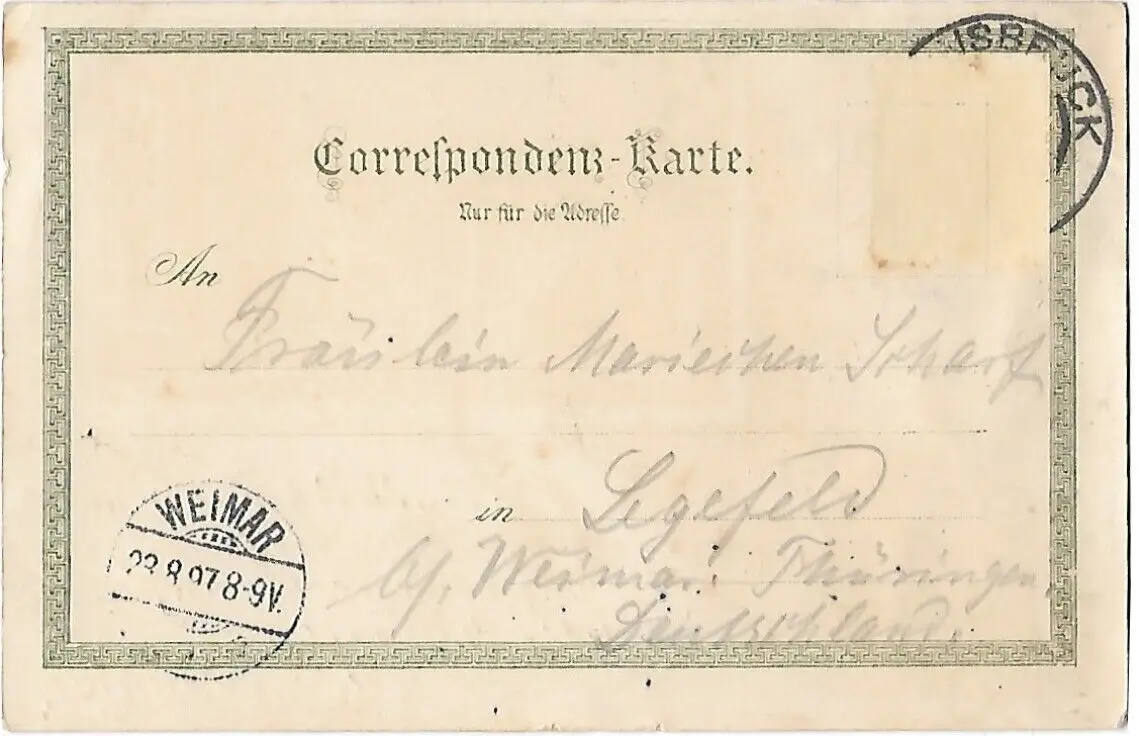 ISBRUCK
Correſpondenz-Karte.
Nur für die Adreſſe
An
Fräulein Mariechen Scharf
in Legefeld
b/. Weimar. Thüringen.
Deutschland.
WEIMAR
8.97 8-9V.